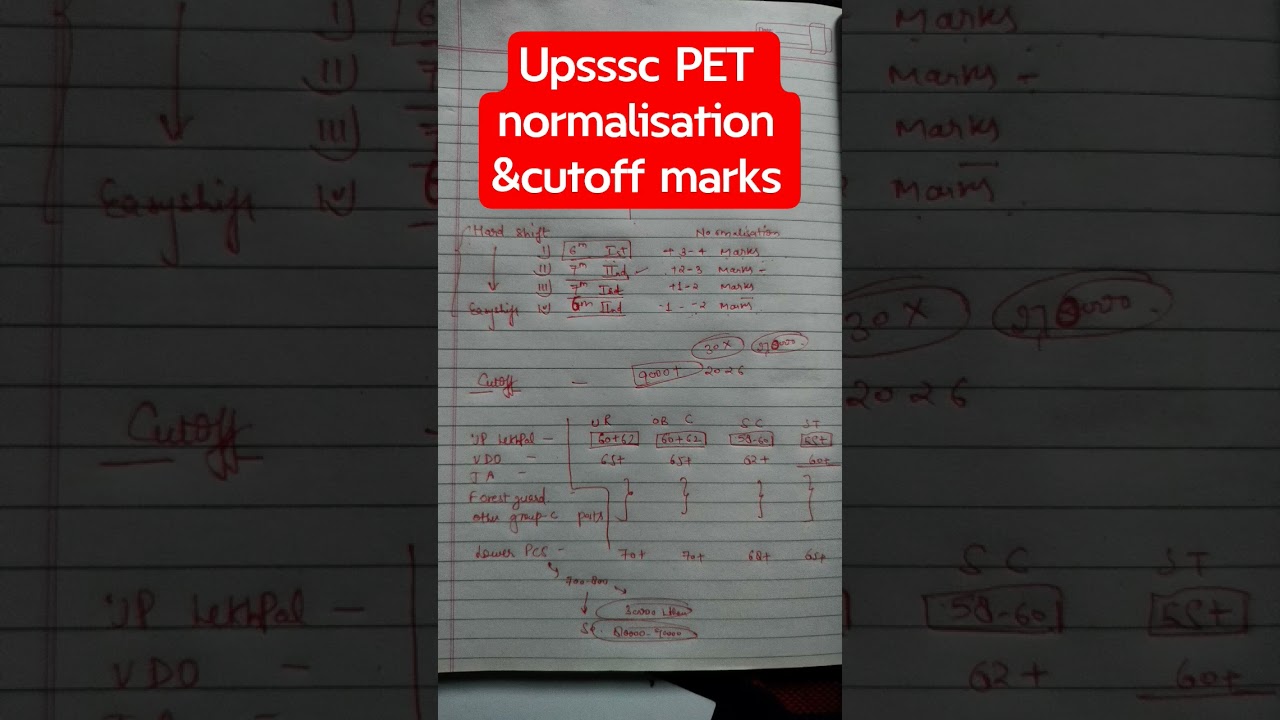 Upsssc PET
normalisation
&cutoff marks
Hard shift Normalisation
I) 6th Ist +3-4 Marks
II) 7th IInd +2-3 Marks -
III) 7th Ist +1-2 Marks
Easyshift IV) 6th IInd -1 - -2 Marks
30 X
Cutoff — 9000+ 2026
UR OB C SC ST
UP Lekhpal - 60+62 60+62 58-60 55+
VDO - 65+ 65+ 62+ 60+
JA -
Forest guard
other group-c posts
Lower PCS - 70+ 70+ 68+ 65+
700-800